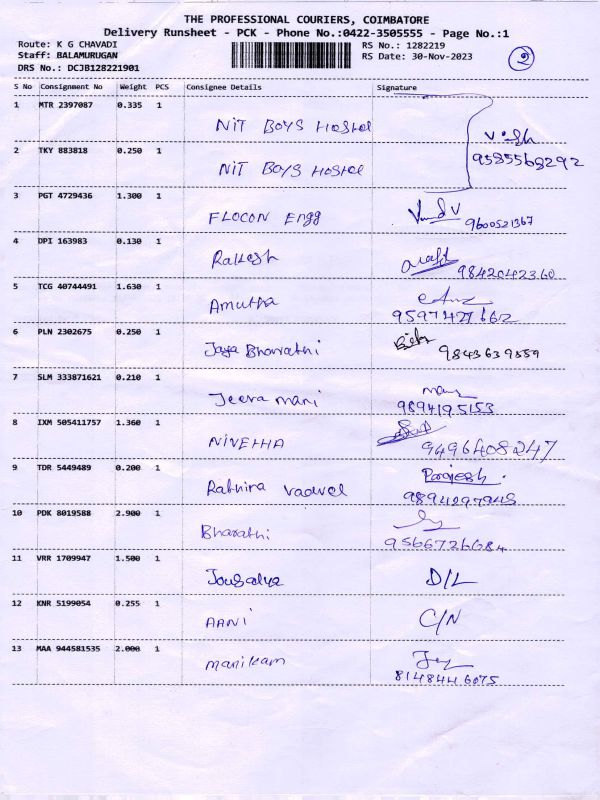 THE PROFESSIONAL COURIERS, COIMBATORE
Delivery Runsheet - PCK - Phone No.:0422-3505555 - Page No.:1
Route: K G CHAVADI RS No.: 1282219
Staff: BALAMURUGAN RS Date: 30-Nov-2023 2
DRS No.: DCJB128221901
S No Consignment No Weight PCS Consignee Details Signature
1 MTR 2397087 0.335 1
NIT BOYS Hostel
9585568292
2 TKY 883818 0.250 1
NIT BOYS Hostel
3 PGT 4729436 1.300 1
FLOCON Engg 9600521367
4 DPI 163983 0.130 1
Rakesh 9842042360
5 TCG 40744491 1.630 1
Amutha
9597427662
6 PLN 2302675 0.250 1
Jaya Bharathi 9843639559
7 SLM 333871621 0.210 1
Jeeva mani
9894195153
8 IXM 505411757 1.360 1
NIVETHA 9496408247
9 TDR 5449489 0.200 1
9894297945
10 PDK 8019588 2.900 1
Bharathi
9566726684
11 VRR 1709947 1.500 1
D/L
12 KNR 5199054 0.255 1
AANI C/N
13 MAA 944581535 2.000 1
manikam
8148446075